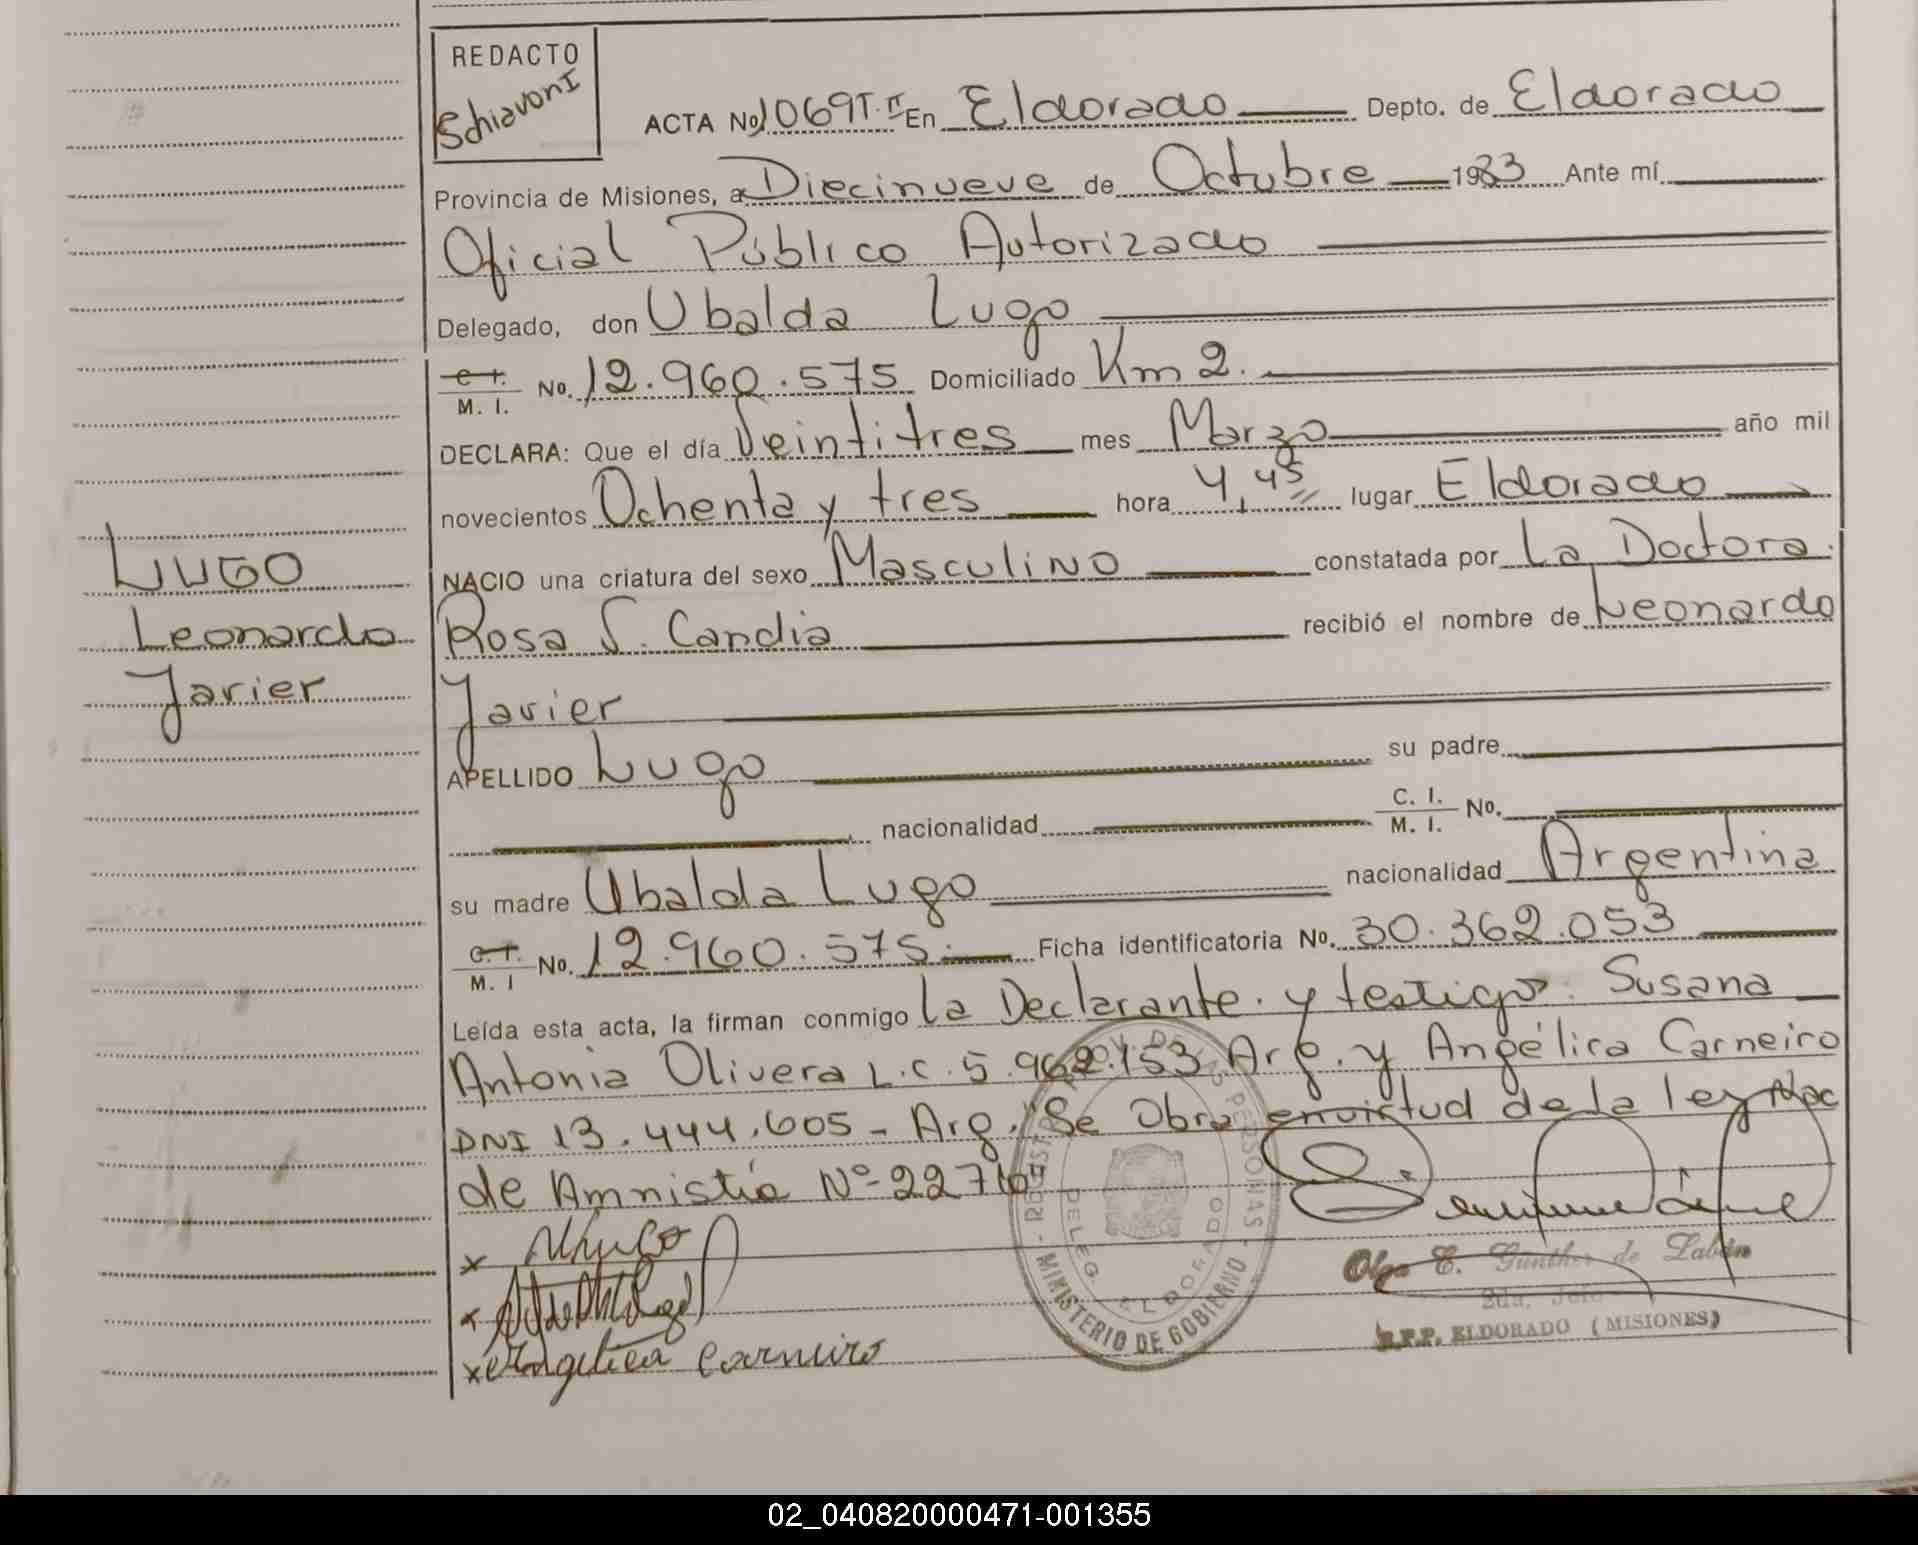 REDACTO
Schiavoni
ACTA No. 1069 T. II En Eldorado Depto. de Eldorado
Provincia de Misiones, a Diecinueve de Octubre 1983 Ante mí
Oficial Público Autorizado
Delegado, don Ubalda Lugo
C. I.
M. I. No. 12.960.575 Domiciliado Km 2.
DECLARA: Que el día Veintitres mes Marzo año mil
novecientos Ochenta y tres hora 4,45 lugar Eldorado
NACIO una criatura del sexo Masculino constatada por La Doctora
Rosa S. Candia recibió el nombre de Leonardo
Javier
APELLIDO Lugo su padre
nacionalidad C. I.
M. I. No.
su madre Ubalda Lugo nacionalidad Argentina
C. I.
M. I No. 12.960.575. Ficha identificatoria No. 30.362.053
Leída esta acta, la firman conmigo La Declarante. y testigos: Susana
Antonia Olivera L.C. 5.962.153 Arg. y Angélica Carneiro
DNI 13.444.605 - Arg. "Se Obra en virtud de la ley Nac
de Amnistía Nº 22710"
LUGO
Leonardo
Javier
x
x
x Angelica Carneiro
MINISTERIO DE GOBIERNO
DELEG. ELDORADO
Olga E. Günther de Labán
2da. Jefe
R.P.P. ELDORADO (MISIONES)
02_040820000471-001355